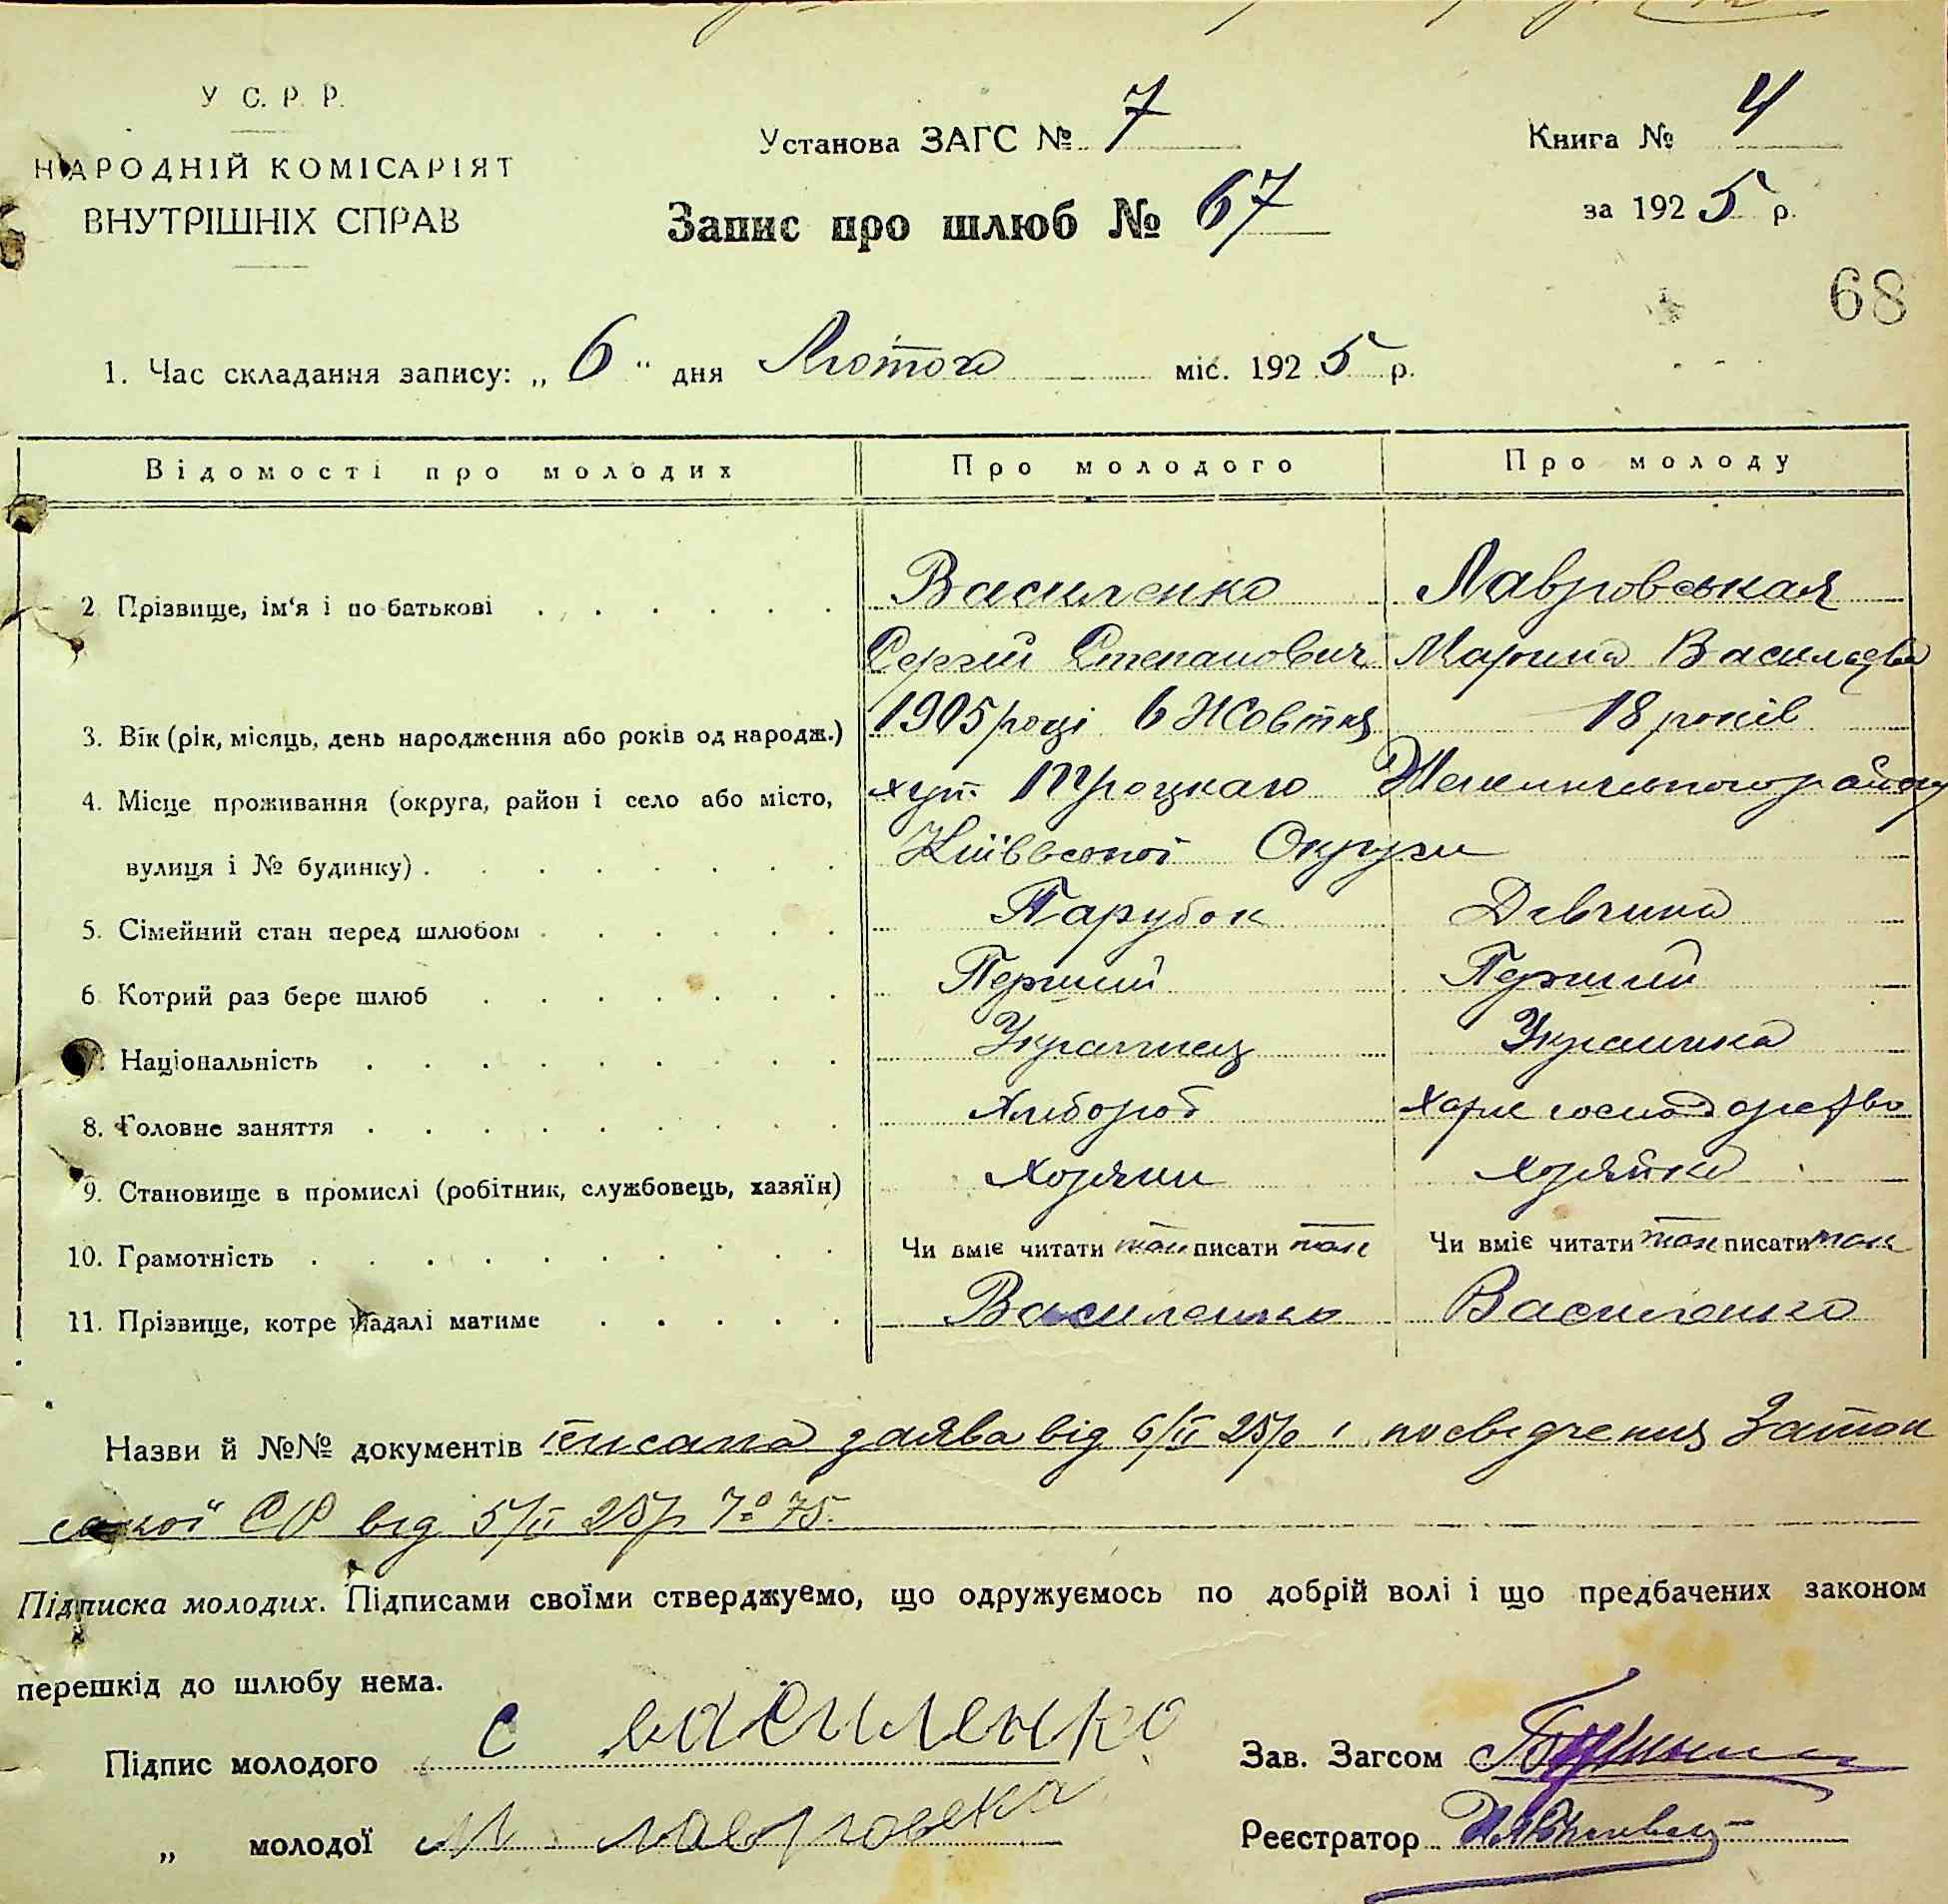 У С. Р. Р.
НАРОДНІЙ КОМІСАРІЯТ
ВНУТРІШНІХ СПРАВ
Установа ЗАГС № 7
Книга № 4
Запис про шлюб № 67
за 1925 р.
68
1. Час складання запису: „ 6 " дня Лютого міс. 1925 р.
Відомості про молодих Про молодого Про молоду
Василенко Лавровськая
2. Прізвище, ім'я і по батькові
Сергій Степанович Марина Василевна
3. Вік (рік, місяць, день народження або років од народж.) 1905 році 6 Жовтня 18 років
4. Місце проживання (округа, район і село або місто, хут. Троцкаго району
вулиця і № будинку) Київської Округи
5. Сімейний стан перед шлюбом Парубок Дівчина
6. Котрий раз бере шлюб Перший Перший
7. Національність Українец Українка
8. Головне заняття Хлібороб господарство
9. Становище в промислі (робітник, службовець, хазяїн) Хозяин Хозяйка
10. Грамотність Чи вміє читати так писати так Чи вміє читати так писати так
11. Прізвище, котре надалі матиме Василенко Василенко
Назви й №№ документів заява від 6/II 25р і посвідчення
ської СР від 5/II 25р № 75.
Підписка молодих. Підписами своїми стверджуємо, що одружуємось по добрій волі і що предбачених законом
перешкід до шлюбу нема.
Підпис молодого С василенко
Зав. Загсом
„ молодої М лавровска
Реєстратор